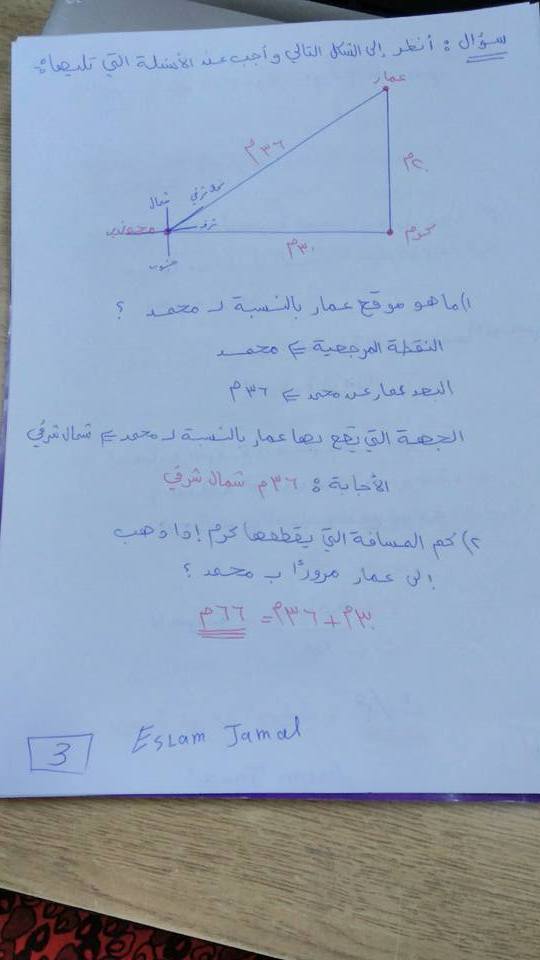 سؤال : أنظر إلى الشكل التالي وأجب عن الأسئلة التي تليها :
عمار
٣٦م
٢٠م
شمال
شمال شرقي
شرق
محمد
جنوب
٣٠م
كرم
١) ما هو موقع عمار بالنسبة لـ محمد ؟
النقطة المرجعية <= محمد
البعد عمار عن محمد <= ٣٦م
الجهة التي يقع بها عمار بالنسبة لـ محمد <= شمال شرقي
الأجابة : ٣٦م شمال شرقي
٢) كم المسافة التي يقطعها كرم إذا ذهب
إلى عمار مرورًا بـ محمد ؟
٣٠م + ٣٦م = ٦٦م
Eslam Jamal
3